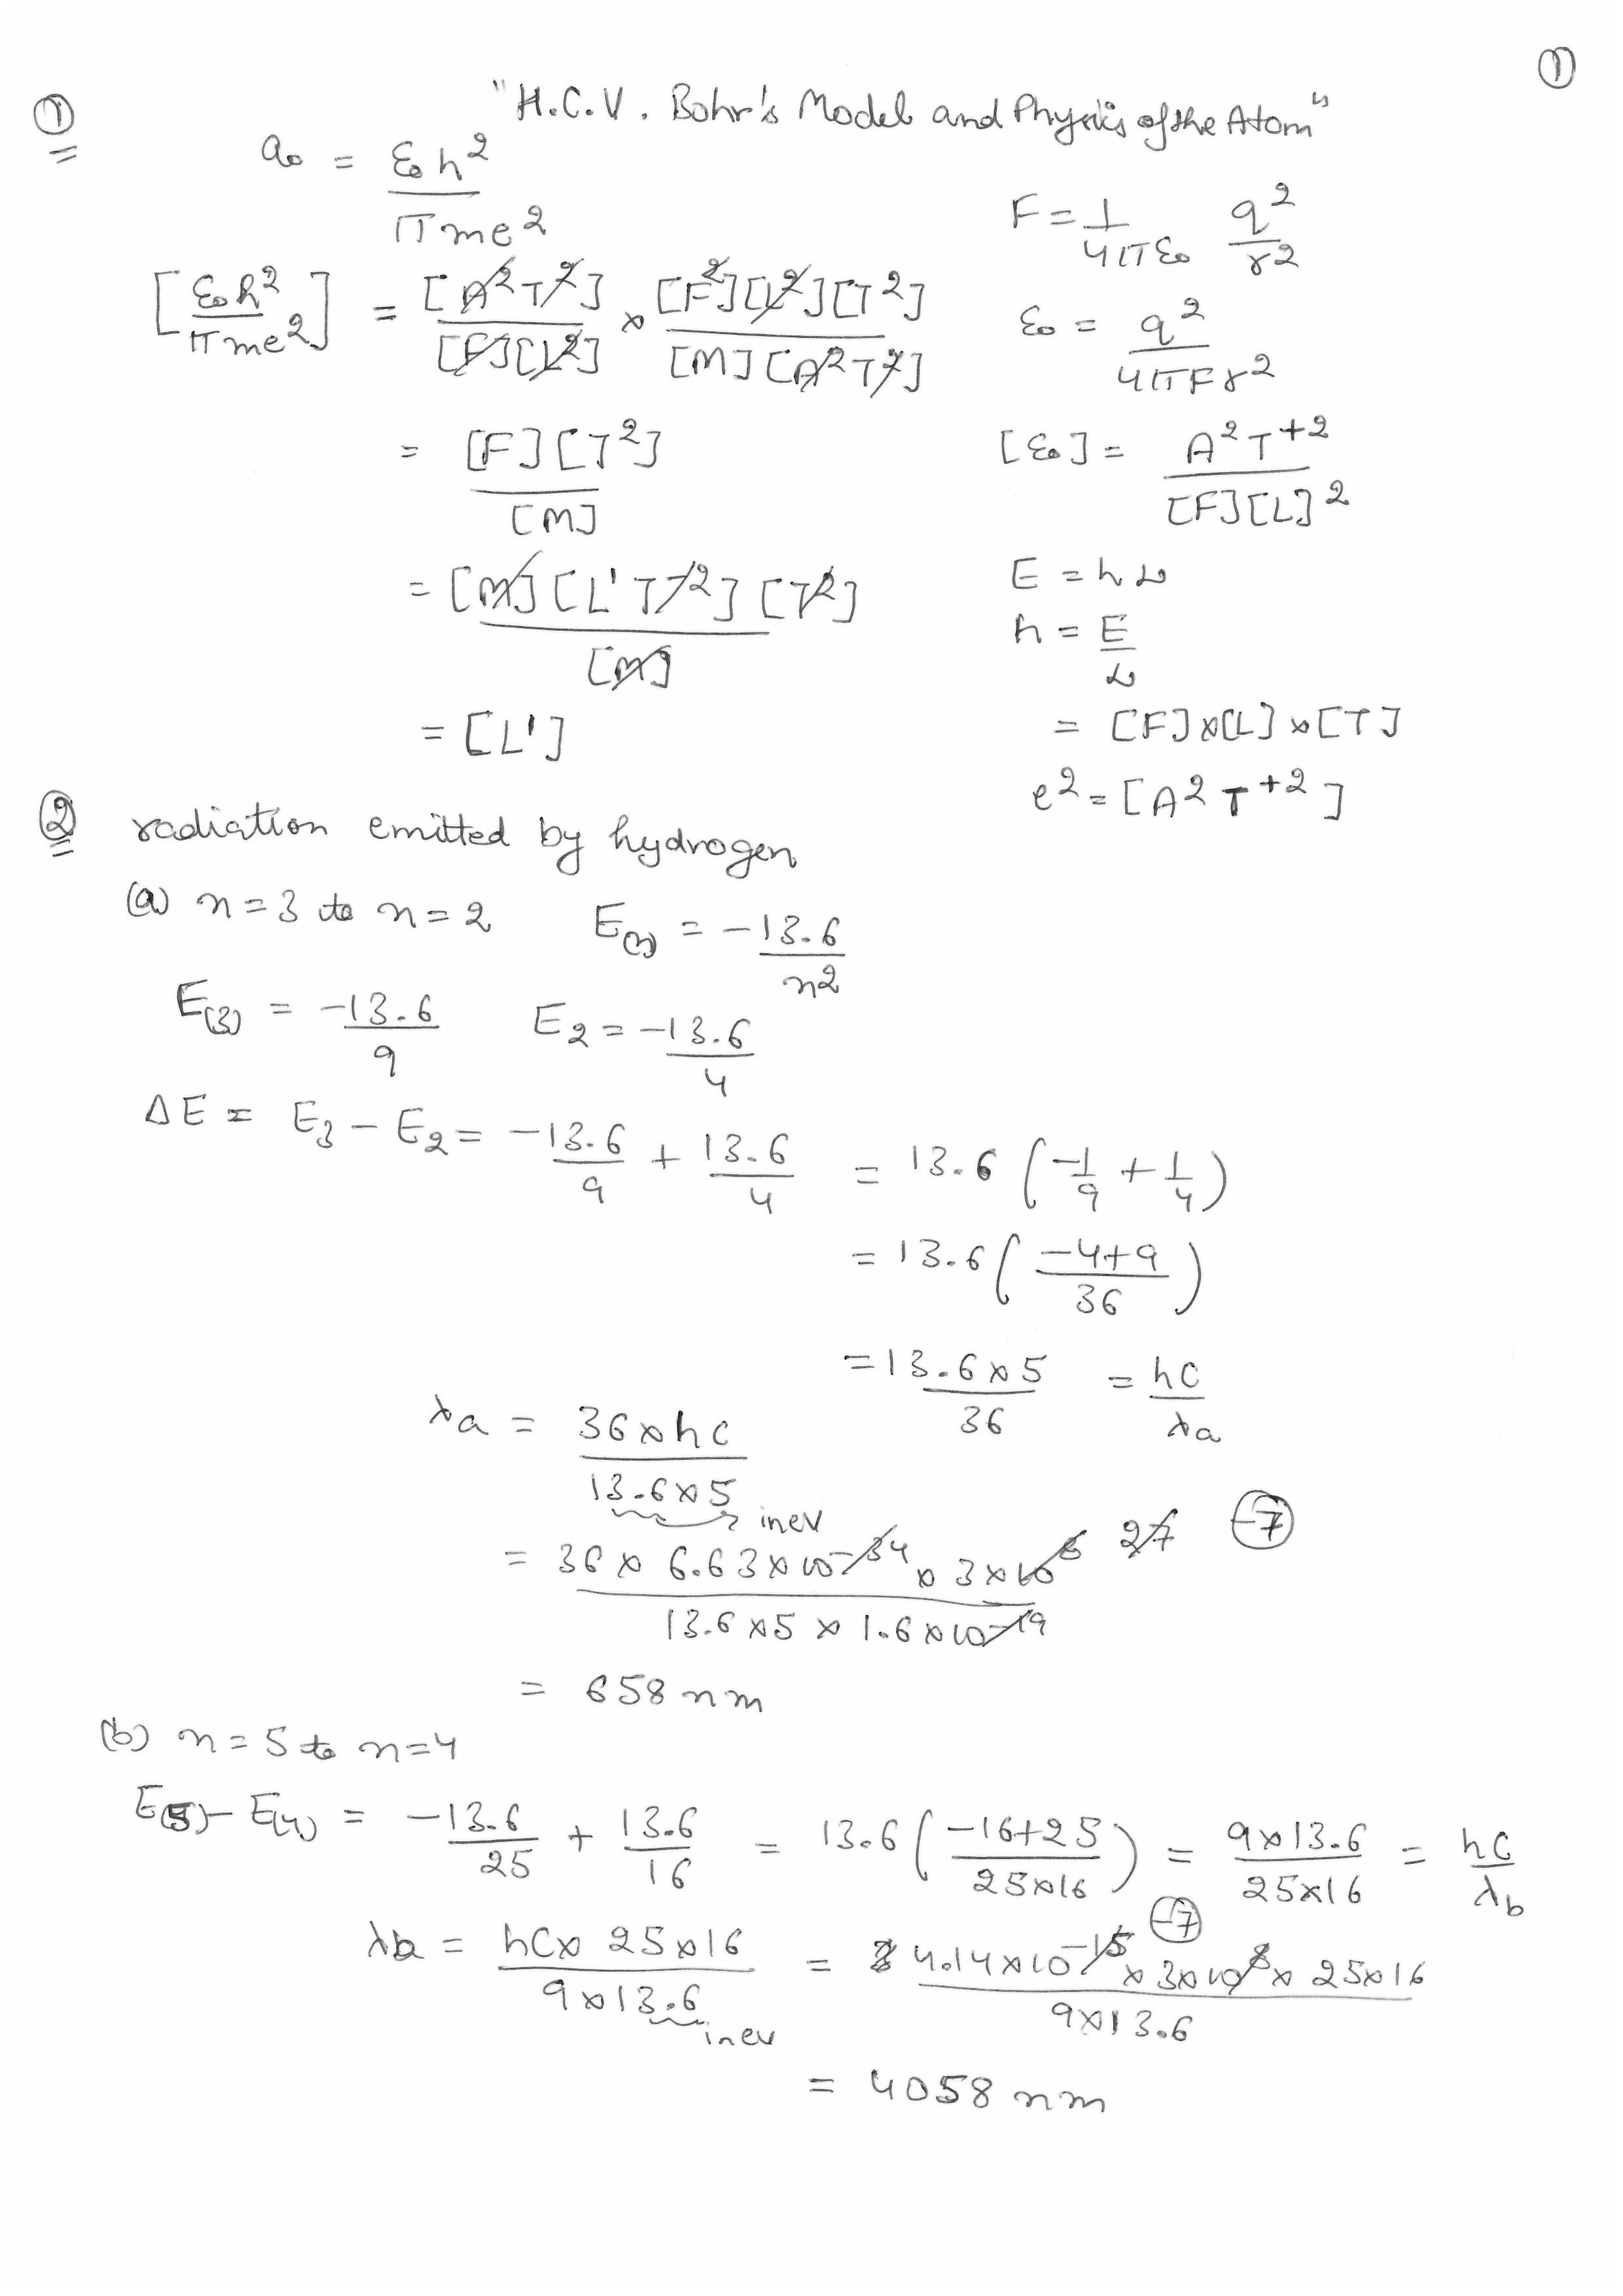 ①
"H.C.V. Bohr's Model and Physics of the Atom"
①
a₀ = ε₀h² / πme²
F = 1/4πε₀ q²/r²
[ε₀h² / πme²] = [A²T²] / [F][L²] × [F²][L²][T²] / [M][A²T²]
ε₀ = q² / 4πFr²
= [F][T²] / [M]
[ε₀] = A²T⁺² / [F][L]²
= [M][L¹T⁻²][T²] / [M]
E = hν
h = E/ν
= [L¹]
= [F]×[L]×[T]
e² = [A²T⁺²]
② radiation emitted by hydrogen
(a) n = 3 to n = 2 E(n) = -13.6 / n²
E(3) = -13.6 / 9 E2 = -13.6 / 4
ΔE = E3 - E2 = -13.6/9 + 13.6/4 = 13.6 (-1/9 + 1/4)
= 13.6 (-4+9 / 36)
= 13.6×5 / 36 = hc / λa
λa = 36×hc / 13.6×5
in ev
= 36 × 6.63×10⁻³⁴ × 3×10⁸ / 13.6×5×1.6×10⁻¹⁹ 27 -7
= 658 nm
(b) n = 5 to n = 4
E(5) - E(4) = -13.6/25 + 13.6/16 = 13.6 (-16+25 / 25×16) = 9×13.6 / 25×16 = hc / λb
λb = hc× 25×16 / 9×13.6 = 4.14×10⁻¹⁵ × 3×10⁸ × 25×16 / 9×13.6 -7
in ev
= 4058 nm